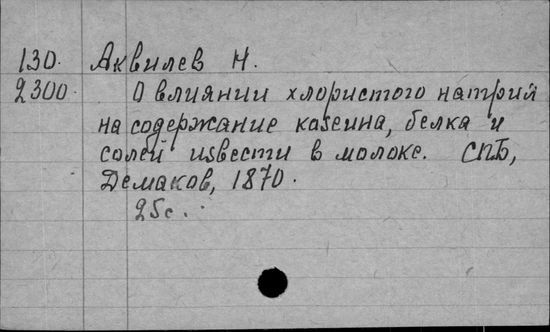 130. Аквилев Н.
2300. О влиянии хлористого натрия
на содержание казеина, белка и
солей извести в молоке. СПБ,
Демаков, 1870.
25с.